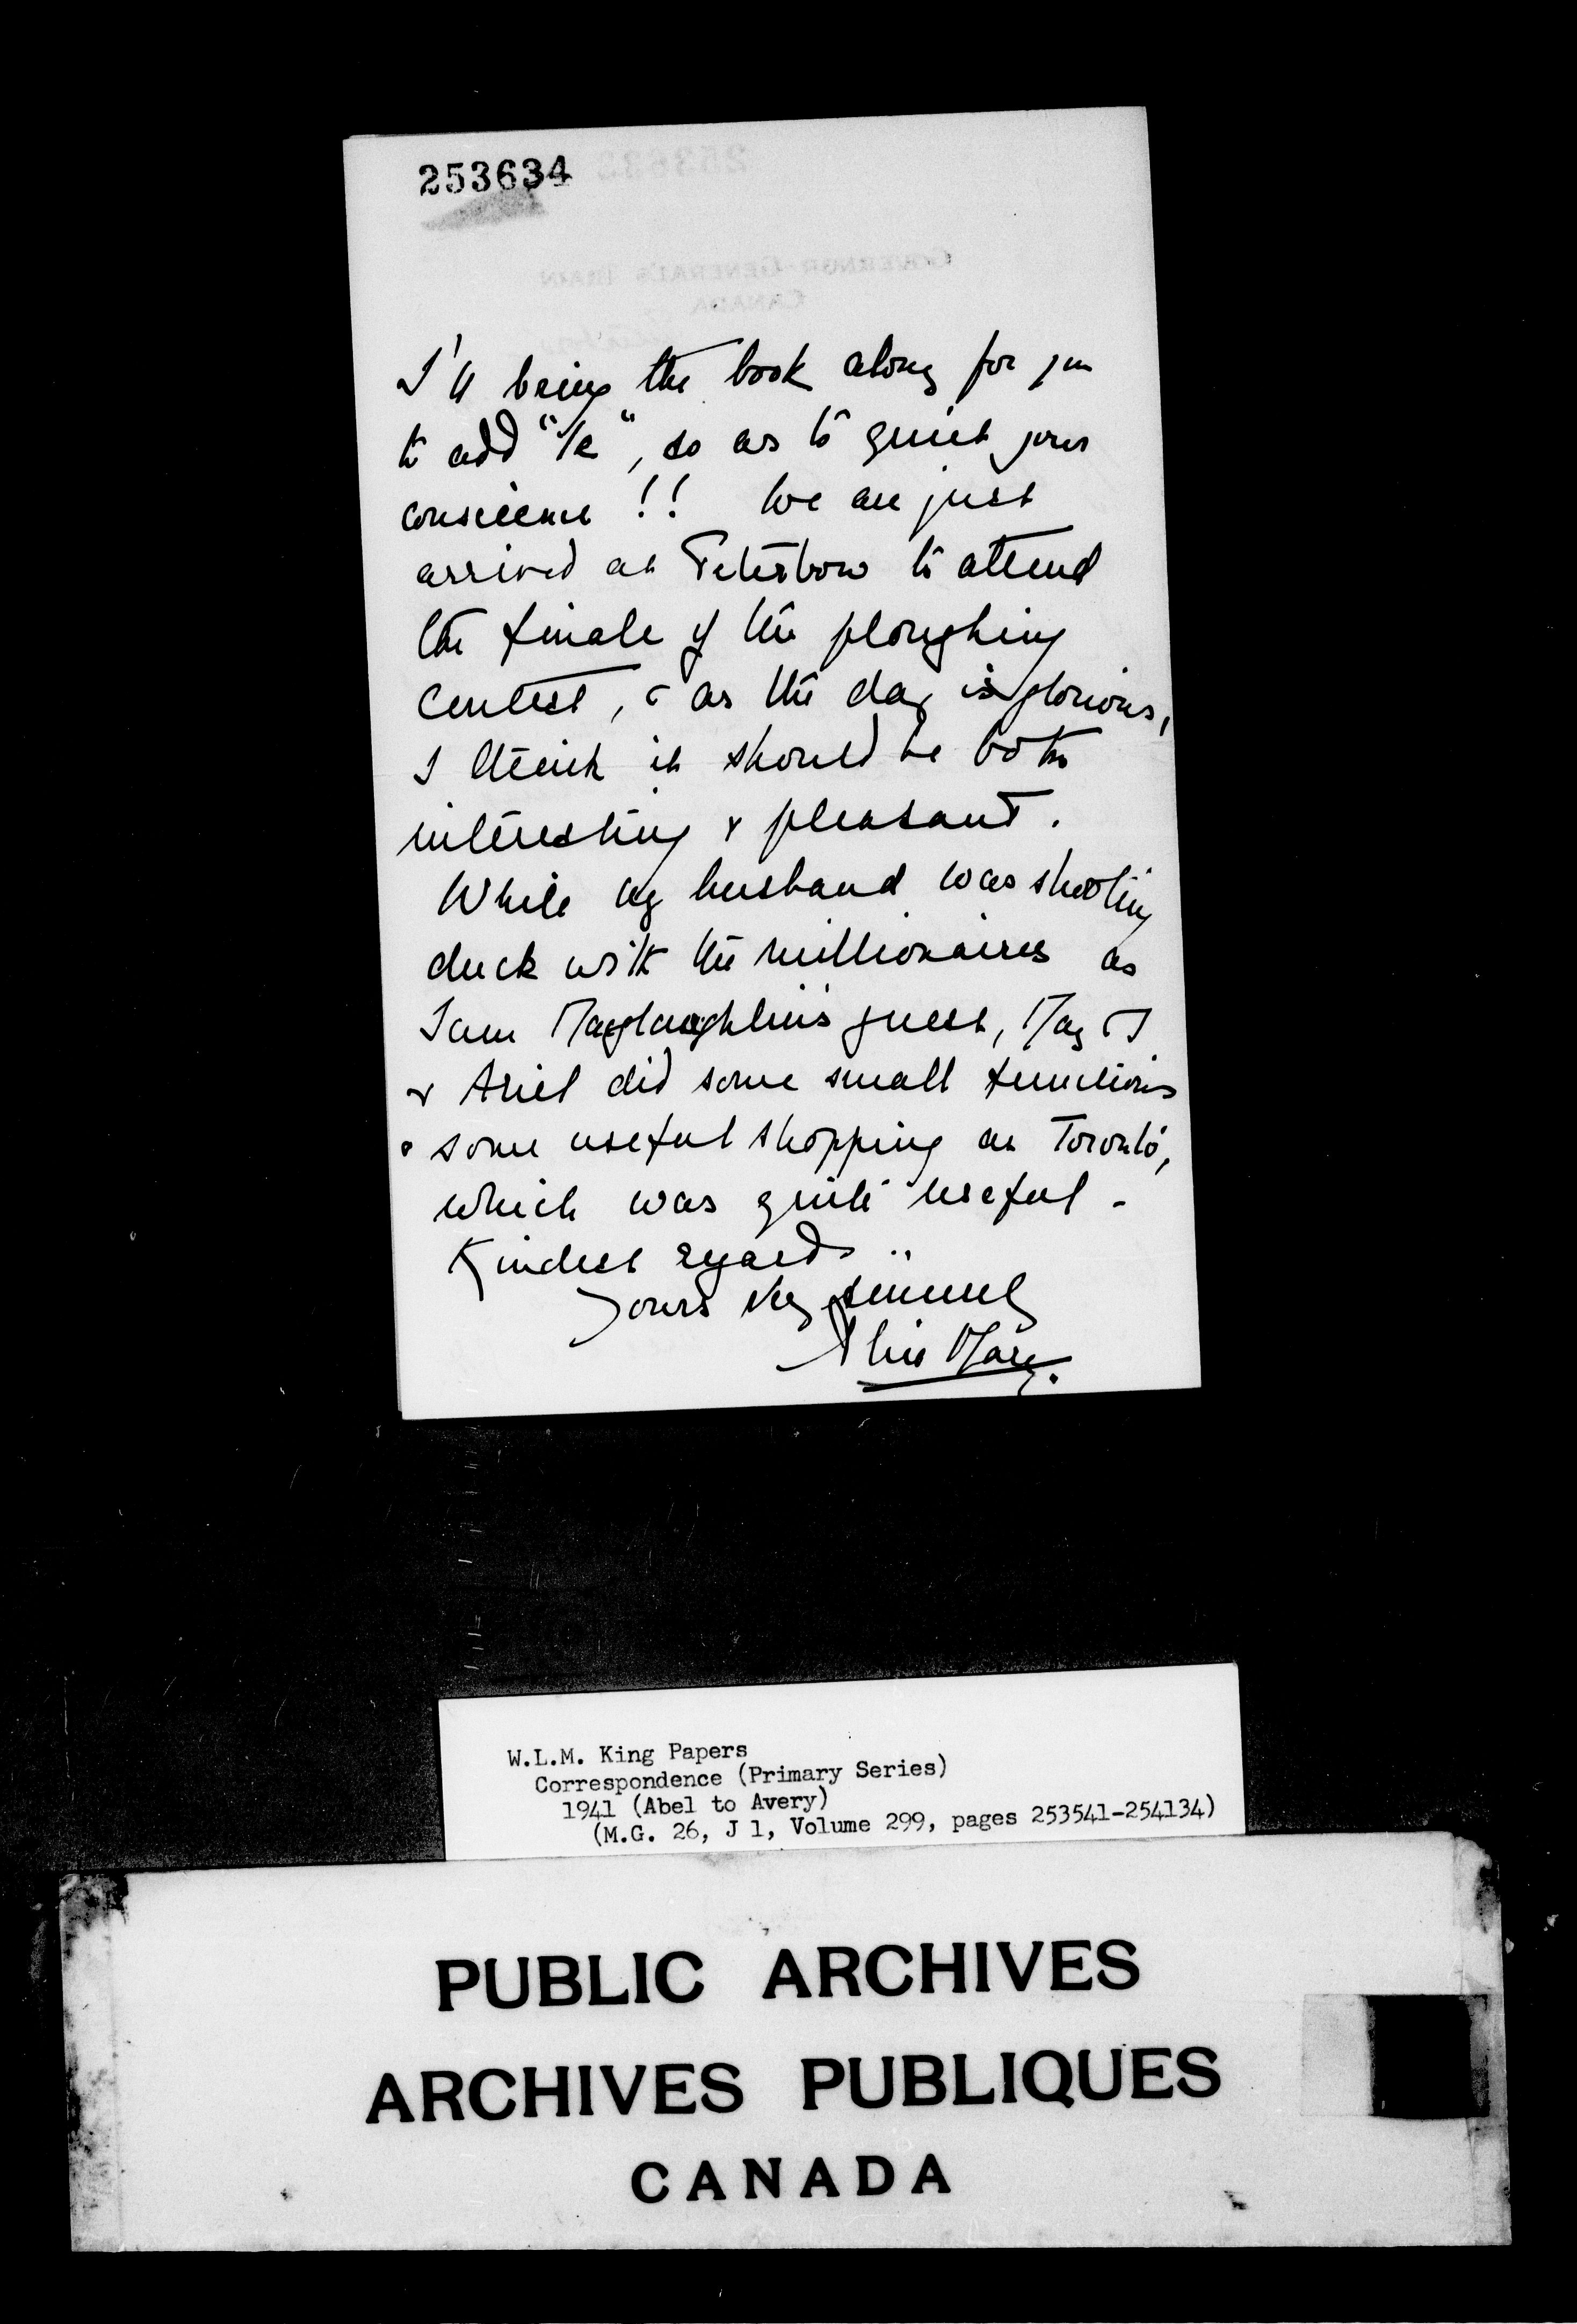 253634
GOVERNOR-GENERAL'S TRAIN
CANADA
I'll bring the book along for you
to add "/2", so as to quiet your
conscience !! We are just
arrived at Peterboro to attend
the finale of the ploughing
contest, & as the day is glorious,
I think it should be both
interesting & pleasant.
While my husband was shooting
duck with the millionaires as
Sam Maglaughlin's guest, May &
& Ariel did some small functions
& some useful shopping at Toronto,
which was quite useful -
Kindest regards ..
Yours very sincerely
Alice Mary.
W.L.M. King Papers
Correspondence (Primary Series)
1941 (Abel to Avery)
(M.G. 26, J 1, Volume 299, pages 253541-254134)
PUBLIC ARCHIVES
ARCHIVES PUBLIQUES
CANADA